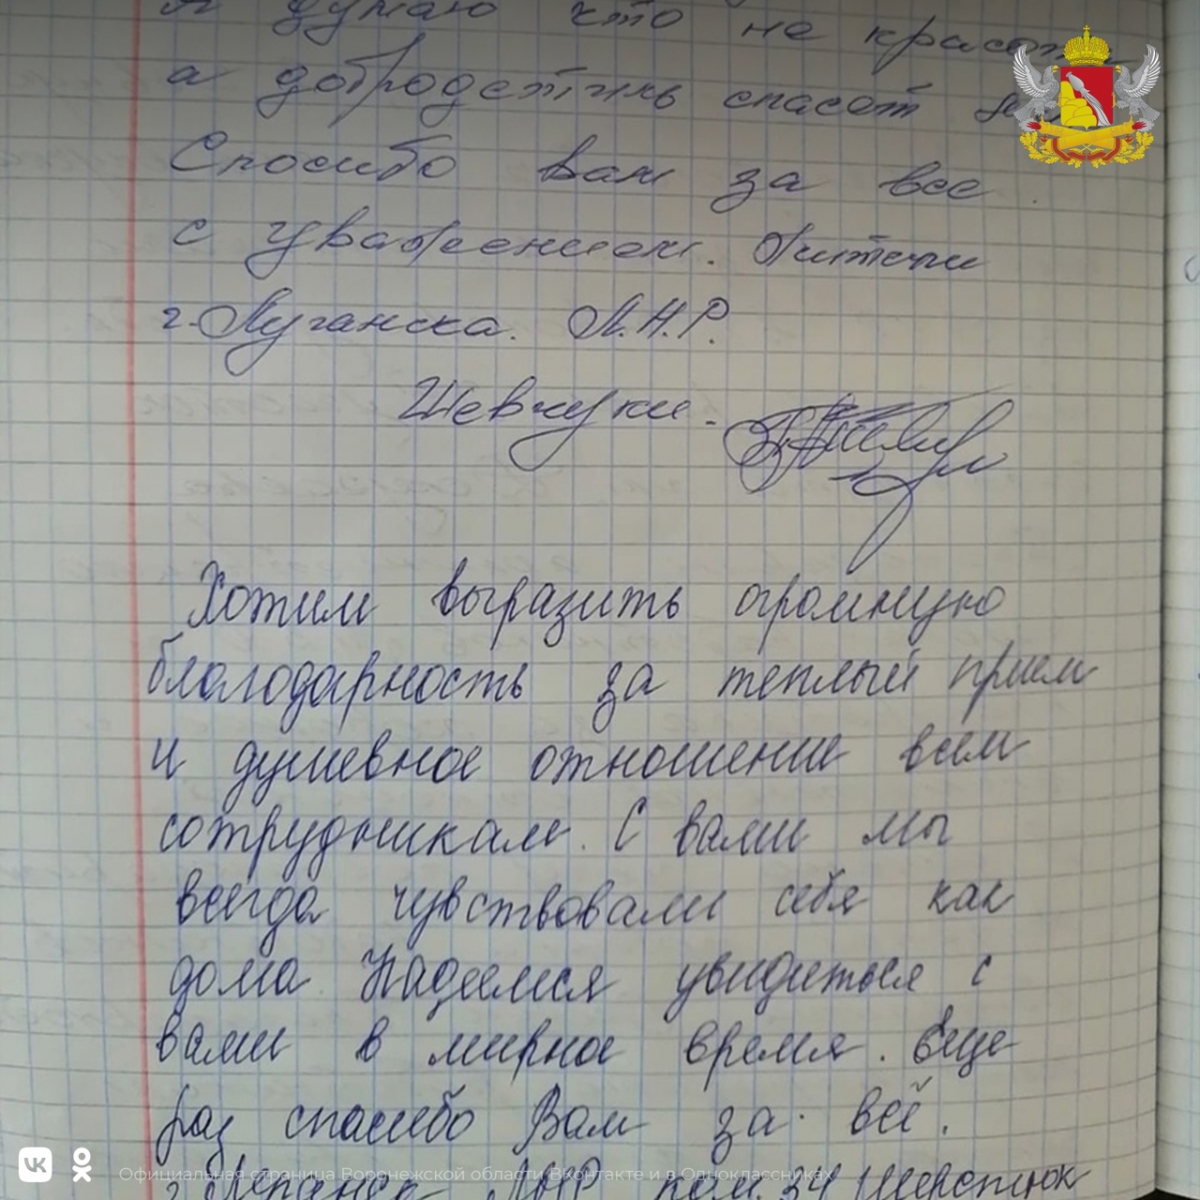 Я думаю что не красота,
а добродетель спасет мир
Спосибо вам за все
с уважением. Жители
г. Луганска. Л.Н.Р.
Шевчуки.
Хотим выразить огромную
благодарность за теплый прием
и душевное отношение всем
сотрудникам. С вами мы
всегда чувствовали себя как
дома. Надеемся увидиться с
вами в мирное время. Еще
раз спасибо Вам за всё.
г. Луганск ЛНР ком. 34 Шерстюк
Официальная страница Воронежской области ВКонтакте и в Одноклассниках